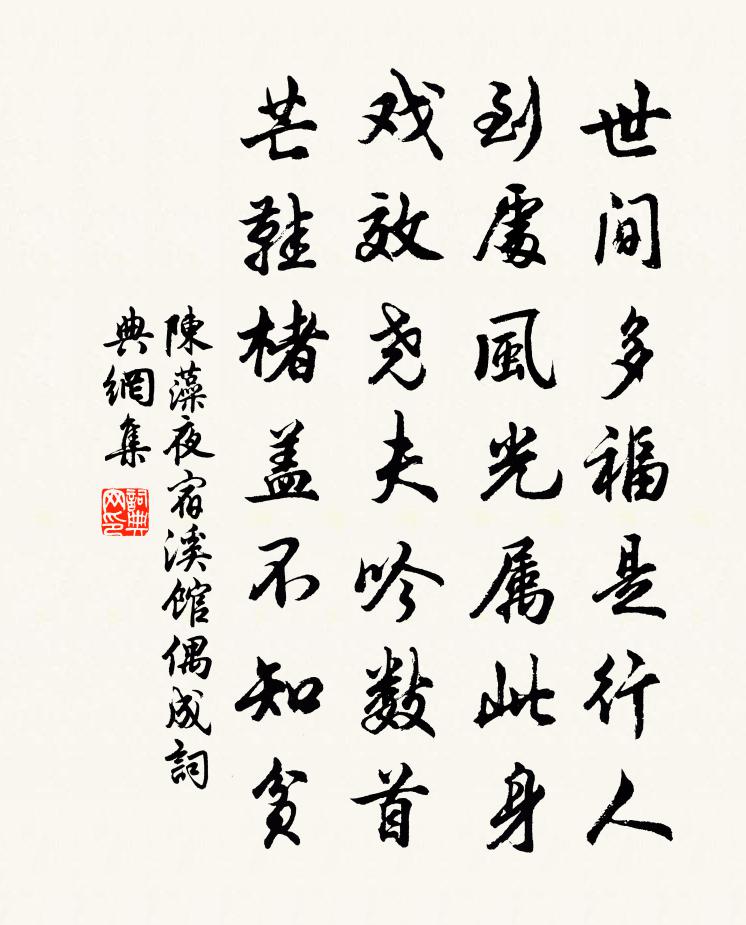 世间多福是行人
到處風光属此身
戏效尧夫吟数首
芒鞋楮盖不知貧
陳藻夜宿溪館偶成詞
典網集
詞典网印